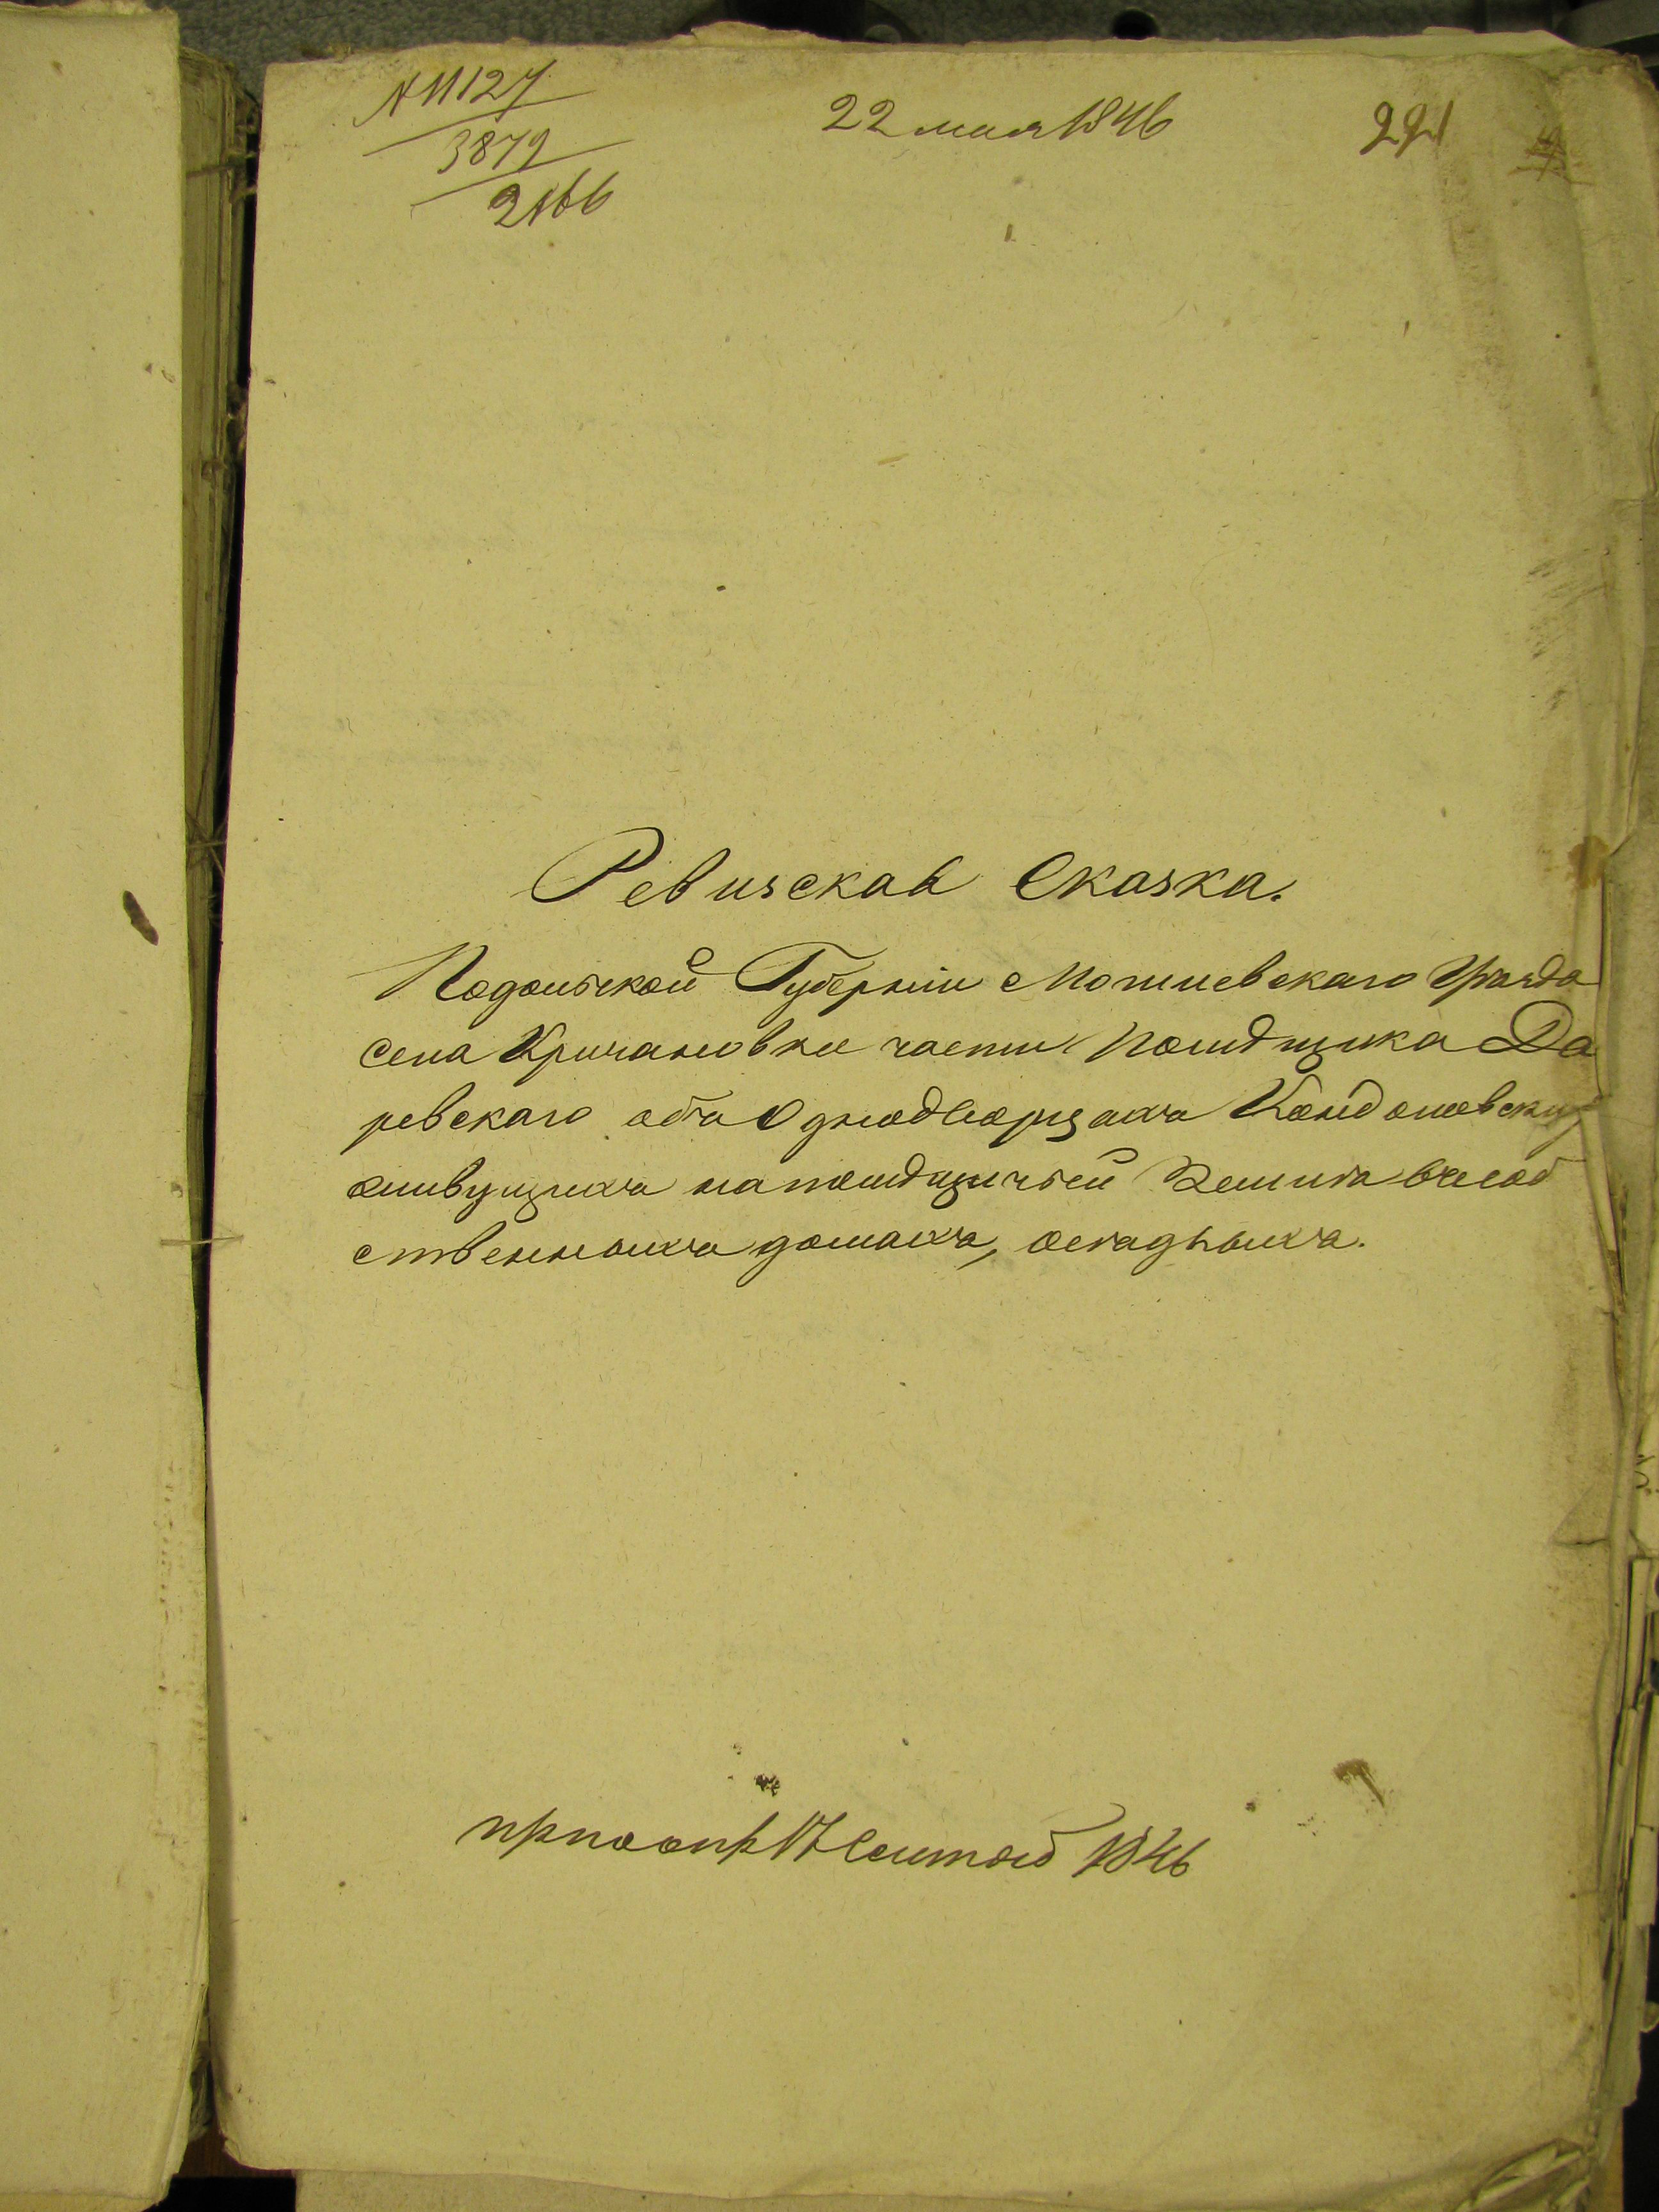 № 11127
3879
2166
22 мая 1846
221
Ревизская Сказка.
Подольской Губерніи Могилевскаго Уѣзда
села Кричановки части Помѣщика Да
ревскаго объ Однодворцахъ
живущихъ на помѣщичьей Землѣ въ соб
ственныхъ домахъ, оседлыхъ.
1846